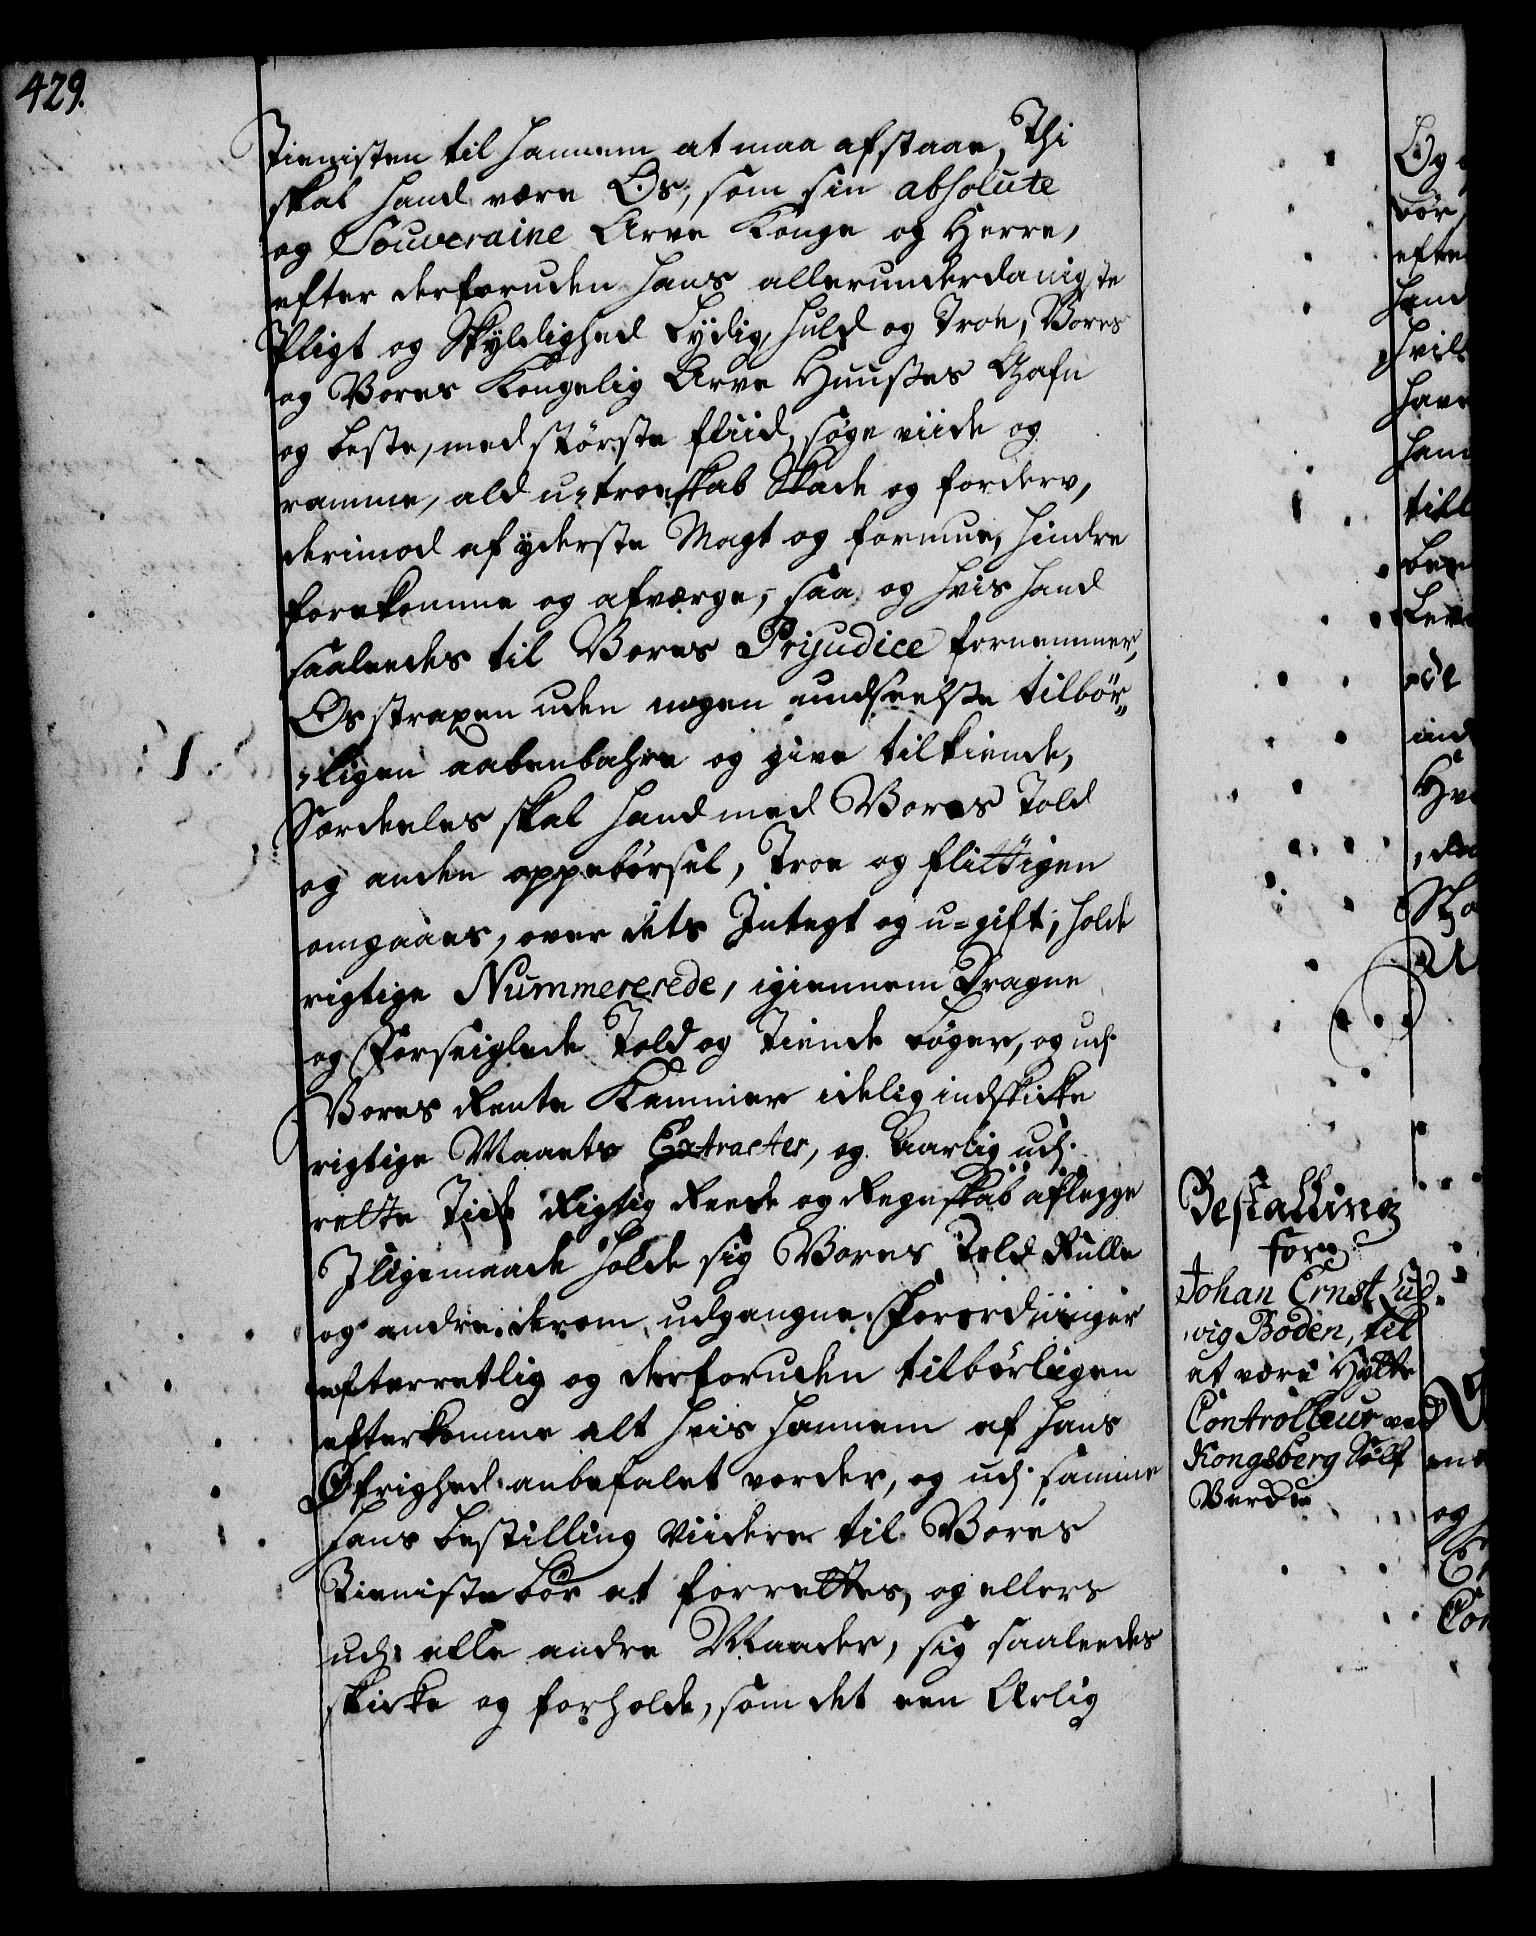 429.
Tienisten til hannem at maa afstaae, Thi
skal hand være Os, som sin absolute
og Souveraine Arve Konge og Herre,
efter derforuden hans allerunderdanigste
Pligt og Skÿldighed Lÿdig, huld og Troe, Vores
og Vores Kongelig Arve Huuses Gafn
og beste, med største fliid, søge viide og
ramme, ald u-troeskab Skade og forderv,
derimod af ÿderste Magt og formue, hindre
forekomme og afværge, saa og hvis hand
saaledes til Vores Prijudice fornemmer,
Os straxen uden nogen undseelse tilbør-
-ligen aabenbahre og give tilkiende,
Særdeeles skal hand med Vores Told
og anden oppebørsel, Troe og flittigen
omgaaes, over dets Jntegt og u-gift, holde
rigtige Nummererede, igiennem Dragne
og Forseiglede Told og Tiende bøger, og udj
Vores Rente Kammer idelig indskicke
rigtige Maanets Extracter, og Aarlig udj
rette Tiid Rigtig Reede og Regnskab aflegge
Jligemaade holde sig Vores Told Rulle
og andre derom udgangne Forordninger
efterretlig og derforuden tilbørligen
efterkomme alt hvis hannem af hans
Øfrighed anbefalet vorder, og udj samme
hans bestilling viidere til Vores
Tieniste bør at forrettes, og ellers
udj alle andre Maader, sig saaledes
skicke og forholde, som det een Ærlig
Bestalling
for
Johan Ernst Lud-
wig Boden, til
at være Hÿtte
Controlleur ved
Kongsberg Sølf
Verdk
Og
bør
efte
hand
hvil
have
hand
till
ind
og